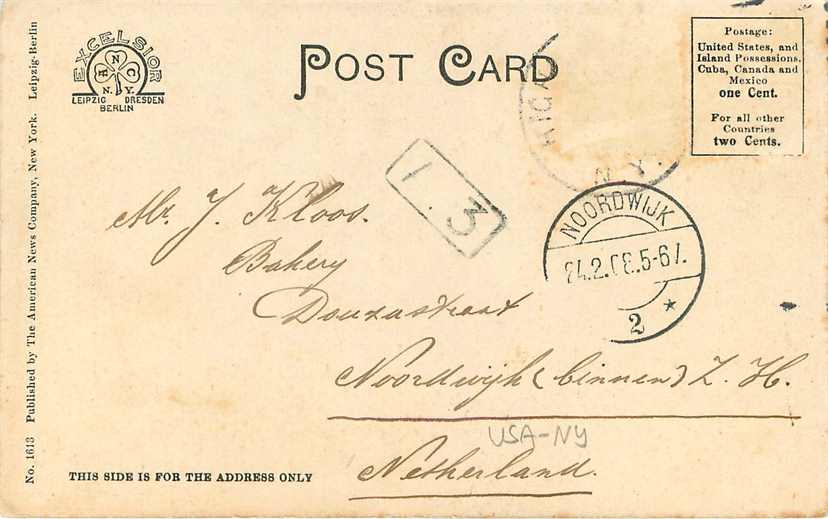 EXCELSIOR
A N C
N.Y.
LEIPZIG DRESDEN
BERLIN
POST CARD
Postage:
United States, and
Island Possessions,
Cuba, Canada and
Mexico
one Cent.
For all other
Countries
two Cents.
N.Y.
1.3
NOORDWIJK
24.2.08.5-6
2 *
Mr. J. Kloos.
Bakery
Douzastraat
Noordwijk (binnen) Z. H.
USA-NY
Netherland.
THIS SIDE IS FOR THE ADDRESS ONLY
No. 1613 Published by The American News Company, New York. Leipzig-Berlin